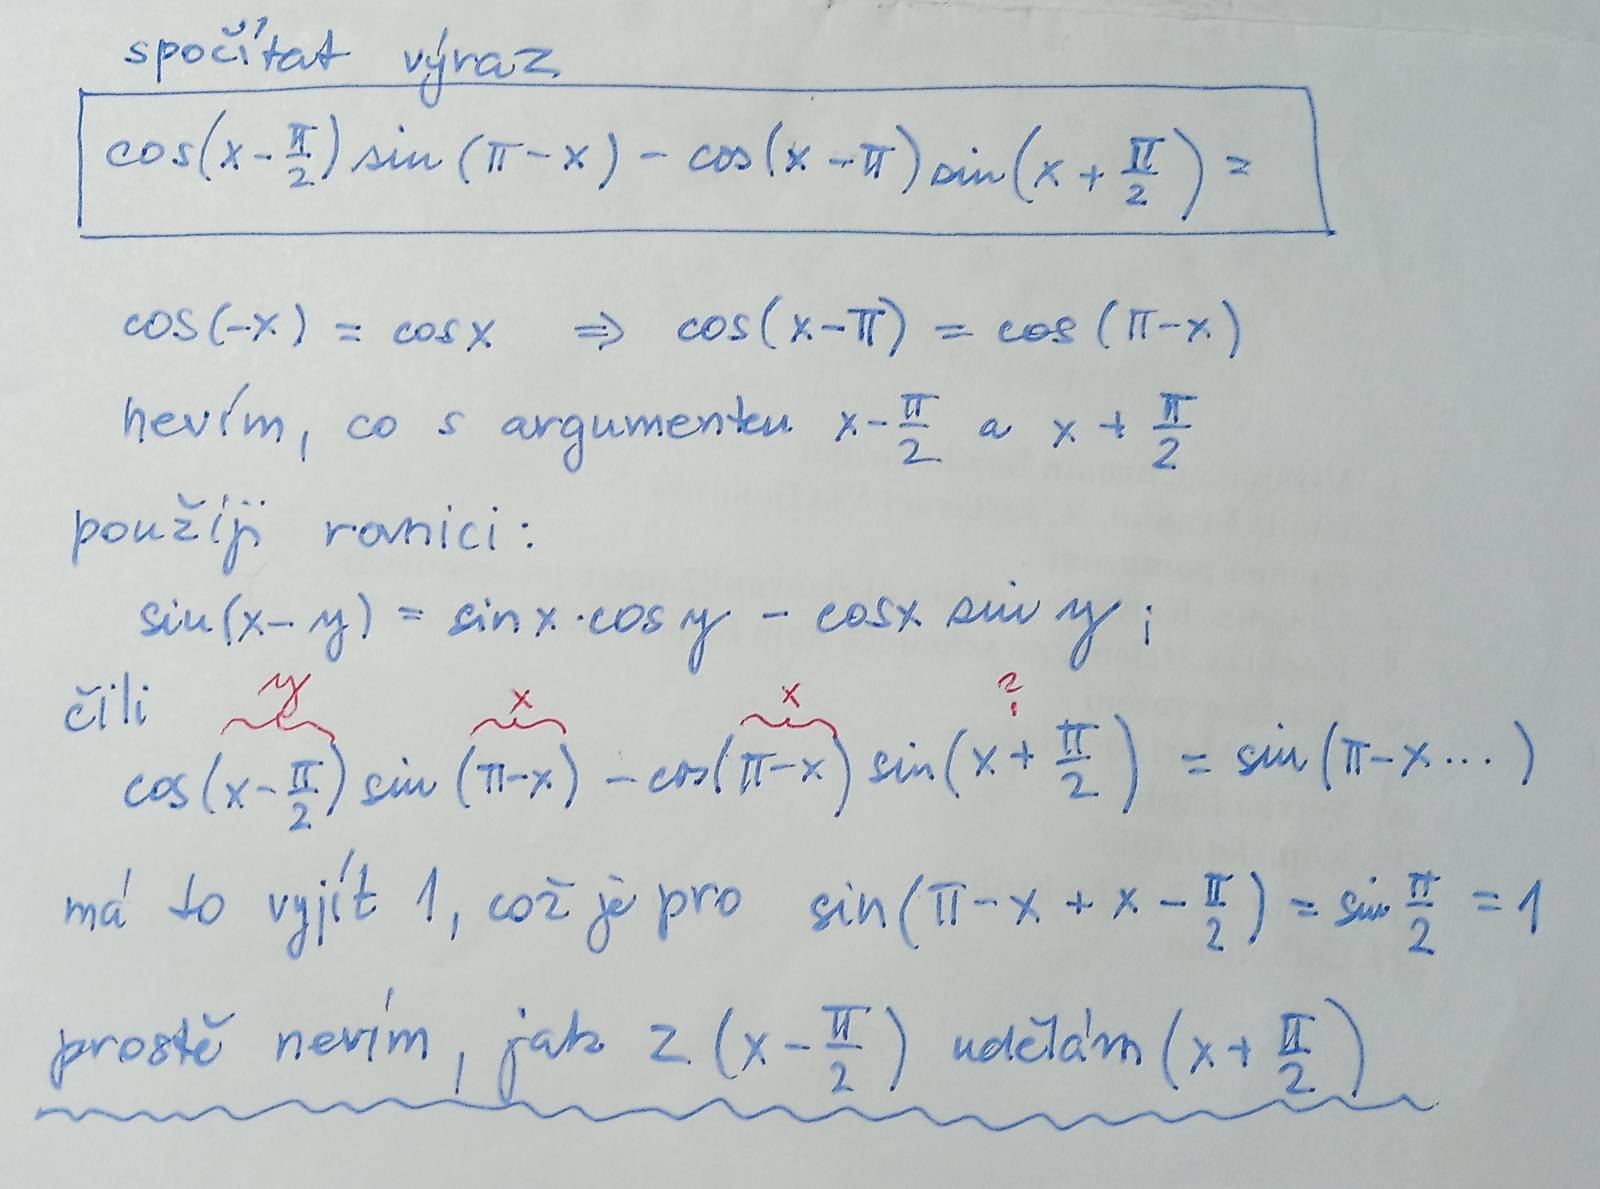 spočítat výraz
cos(x - π/2) sin(π - x) - cos(x - π) sin(x + π/2) =
cos(-x) = cos x ⇒ cos(x - π) = cos(π - x)
nevím, co s argumentu x - π/2 a x + π/2
použiji rovnici:
sin(x - y) = sin x · cos y - cos x sin y ;
čili
y x x ?
cos(x - π/2) sin(π - x) - cos(π - x) sin(x + π/2) = sin(π - x ... )
má to vyjít 1, což je pro sin(π - x + x - π/2) = sin π/2 = 1
prostě nevím, jak z (x - π/2) udělám (x + π/2)